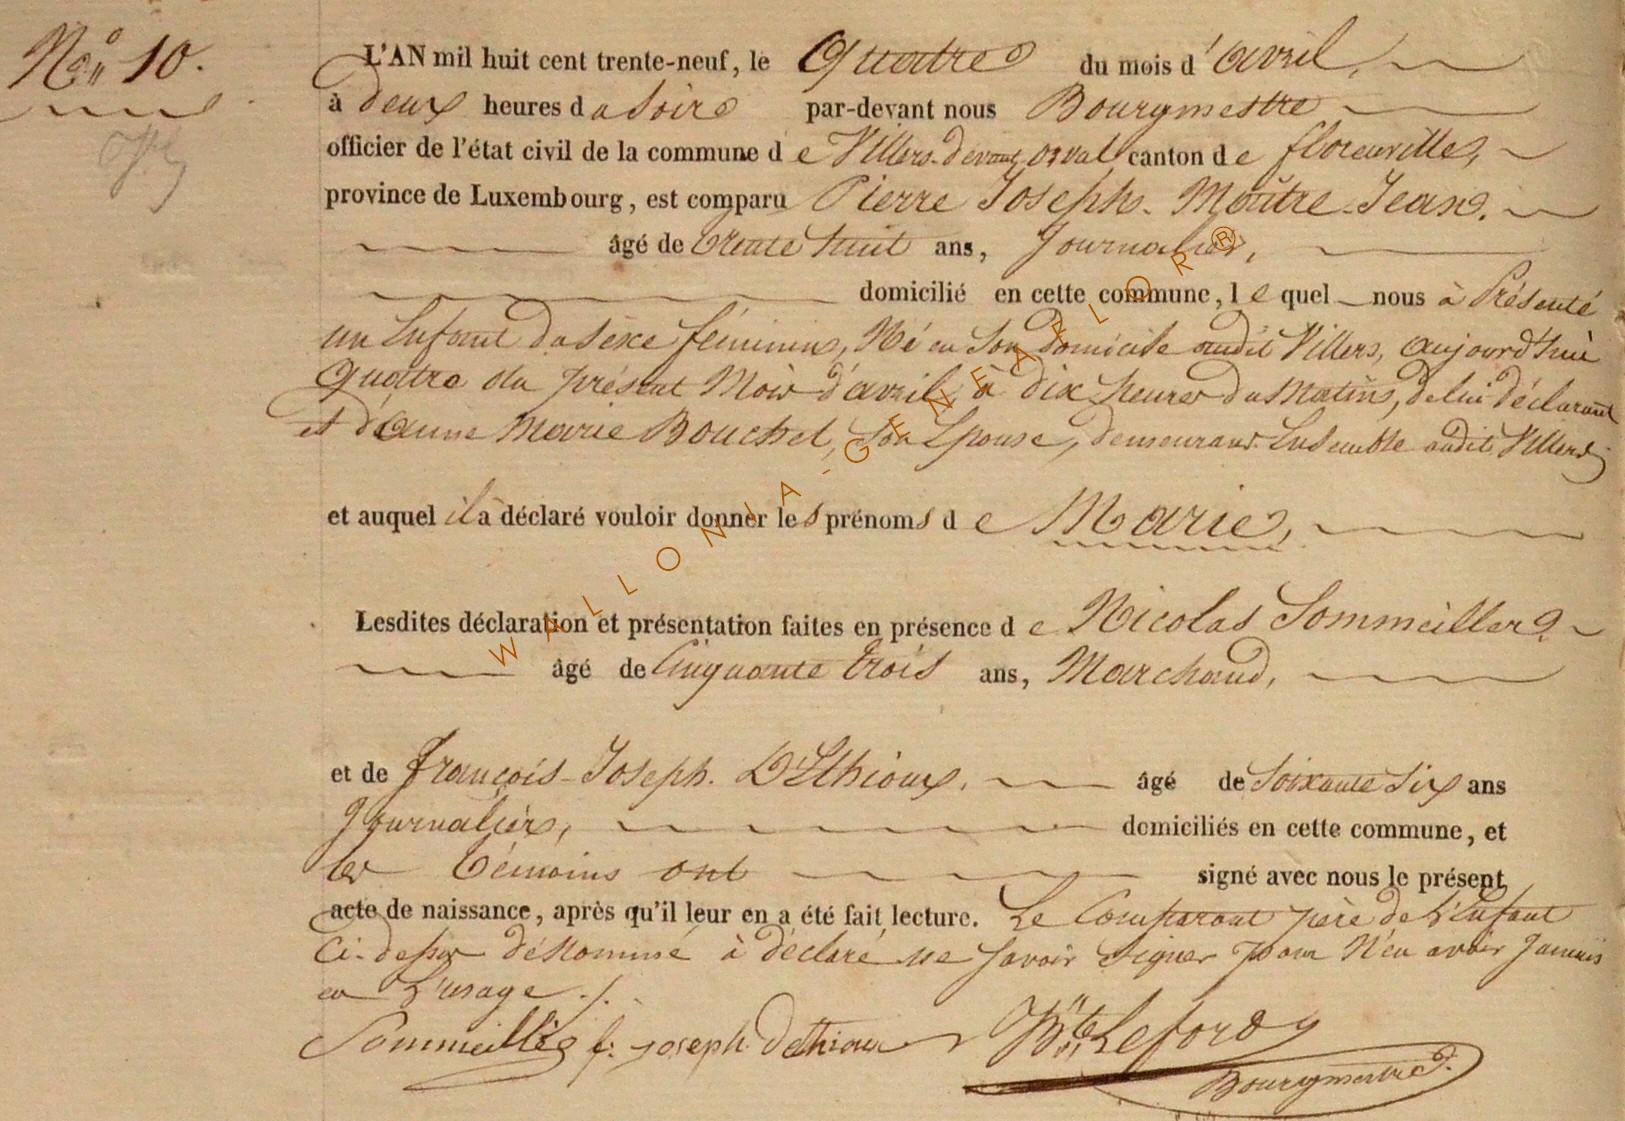 No 10.
L'AN mil huit cent trente-neuf, le Quatre du mois d'avril,
à deux heures du Soire par-devant nous Bourgmestre
officier de l'état civil de la commune de Villers-devant orval canton de florenville,
province de Luxembourg, est comparu Pierre Joseph Maître-Jean,
âgé de trente huit ans, Journalier,
domicilié en cette commune, lequel nous à Présenté
un Enfant du sexe féminin, Né en Son Domicile audit Villers, aujourd'hui
Quatre du présent Mois d'avril, à dix heures du Matins, de lui déclarant
et d'anne Marie Bouchet, son Epouse, demeurans Ensemble audit Villers,
et auquel il à déclaré vouloir donner les prénoms de Marie,
Lesdites déclaration et présentation faites en présence de Nicolas Sommeiller,
âgé de Cinquante trois ans, Marchand,
et de françois-Joseph D'Ethioux, âgé de Soixante Six ans
Journalier, domiciliés en cette commune, et
les témoins ont signé avec nous le présent
acte de naissance, après qu'il leur en a été fait lecture. Le Comparant père de L'Enfant
Ci-dessus dénommé à déclaré ne savoir signer pour N'en avoir Jamais
eu L'usage ./.
Sommeillier f: joseph Dethioux Bte Leforgy
Bourgmestre
WALLONIA-GENEAFLOR®